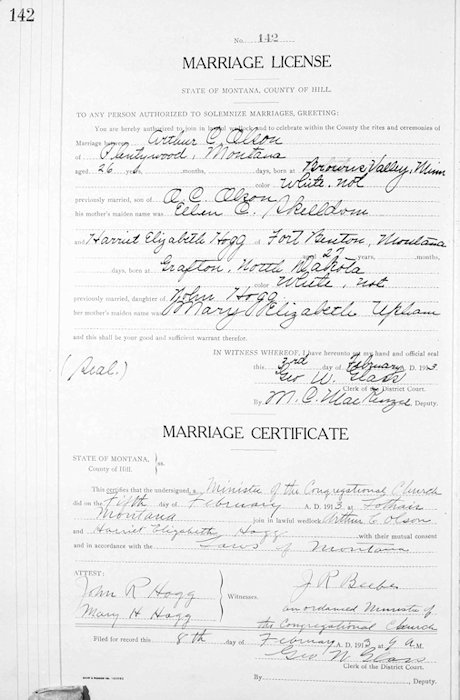 142
No. 142
MARRIAGE LICENSE
STATE OF MONTANA, COUNTY OF HILL.
TO ANY PERSON AUTHORIZED TO SOLEMNIZE MARRIAGES, GREETING:
You are hereby authorized to join in lawful wedlock and to celebrate within the County the rites and ceremonies of
Marriage between Arthur C. Olson
of Plentywood, Montana
aged 26 years, months, days, born at Browns Valley, Minn
color White, not
previously married, son of O. C. Olson
his mother's maiden name was Ellen C. Skelldom
and Harriet Elizabeth Hogg of Fort Benton, Montana
aged 27 months,
days, born at Grafton, North Dakota
color White, not
previously married, daughter of John Hogg
her mother's maiden name was Mary Elizabeth Upham
and this shall be your good and sufficient warrant therefor.
IN WITNESS WHEREOF, I have hereunto set my hand and official seal
(Seal.) this 3rd day of February A. D. 1913.
Geo W. Glass
Clerk of the District Court.
By M. C. MacKenzie Deputy.
MARRIAGE CERTIFICATE
STATE OF MONTANA, ss.
County of Hill.
This certifies that the undersigned, a Minister of the Congregational Church
did on the fifth day of February A. D. 1913 at
Montana join in lawful wedlock Arthur C. Olson
and Harriet Elizabeth Hogg with their mutual consent
and in accordance with the Laws of Montana
ATTEST:
John R Hogg
Mary H. Hogg
Witnesses.
J R Beebe
an ordained Minister of
the Congregational Church
Filed for record this 8th day of February A. D. 1913 at 9 A. M.
Geo. W. Glass
Clerk of the District Court.
By Deputy.